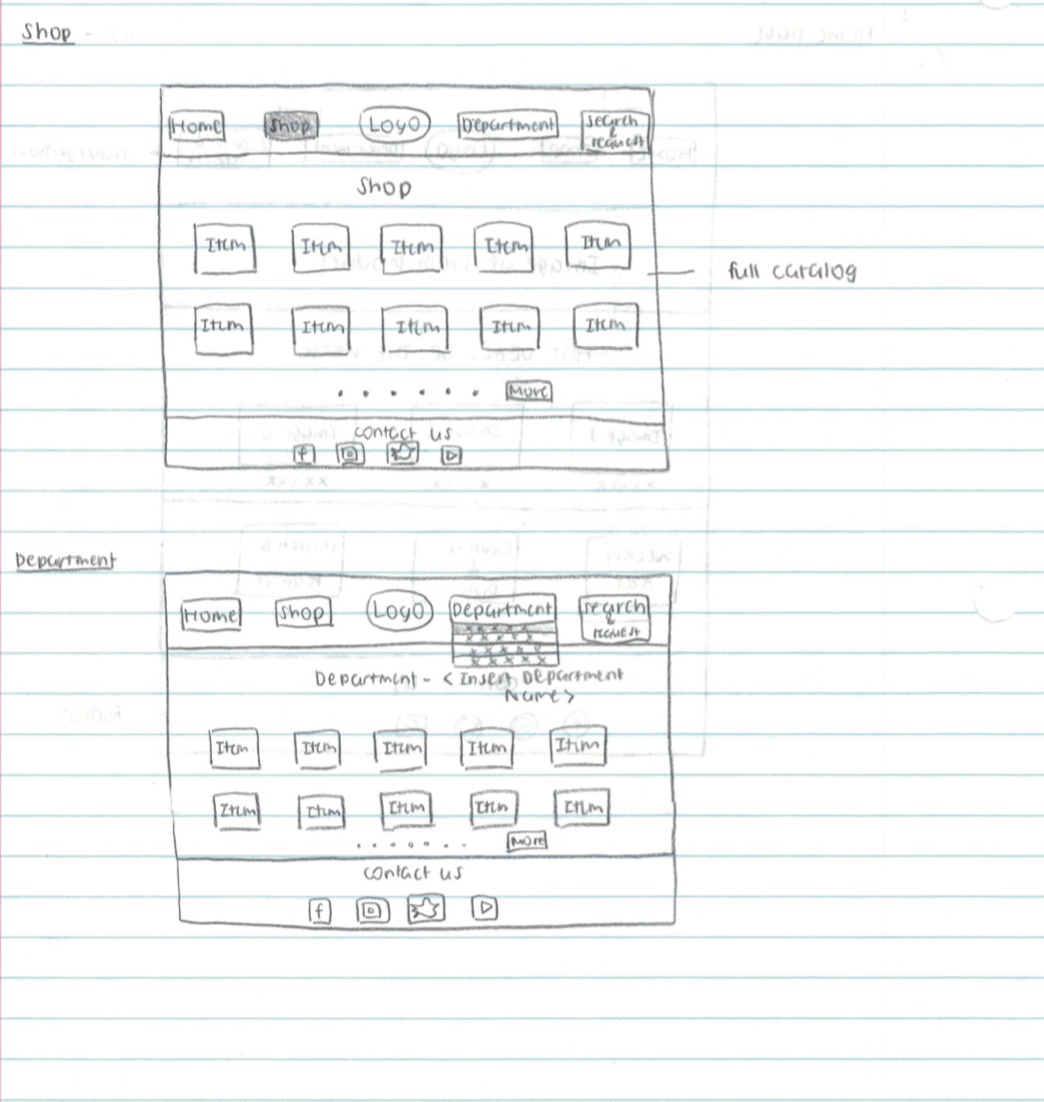 Shop -
Home Shop Logo Department search
&
request
Shop
Item Item Item Item Item
full catalog
Item Item Item Item Item
More
contact us
f
Department
Home Shop Logo Department search
&
request
x x x x x
x x x x x
x x x x x
x x x x x
Department - < Insert Department
Name >
Item Item Item Item Item
Item Item Item Item Item
More
contact us
f